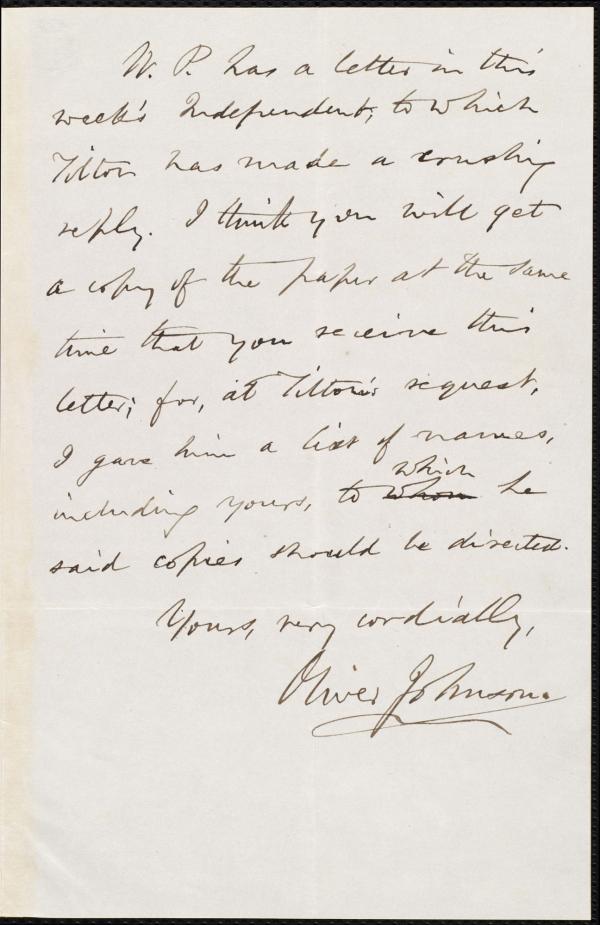 W. P. has a letter in this
week's Independent, to which
Tilton has made a crushing
reply. I think you will get
a copy of the paper at the same
time that you receive this
letter; for, at Tilton's request,
I gave him a list of names,
including yours, to whom which he
said copies should be directed.
Yours, very cordially,
Oliver Johnson.